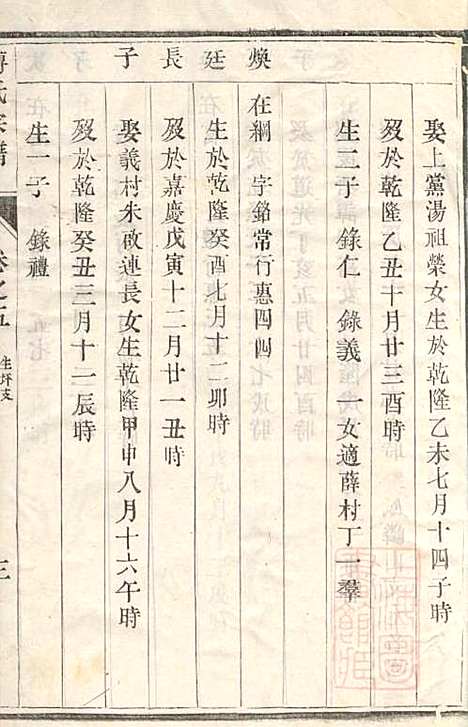 娶上黨湯祖榮女生於乾隆乙未七月十四子時
歿於乾隆乙丑十月廿三酉時
生二子 錄仁 錄義 一女適薛村丁一羣
煥廷長子
在綱 字銘常行惠四四
生於乾隆癸酉七月十二卯時
歿於嘉慶戊寅十二月廿一丑時
娶義村朱啟連長女生乾隆甲申八月十六午時
歿於乾隆癸丑三月十二辰時
生一子 錄禮
氏宗譜
卷之五
生坪支
三